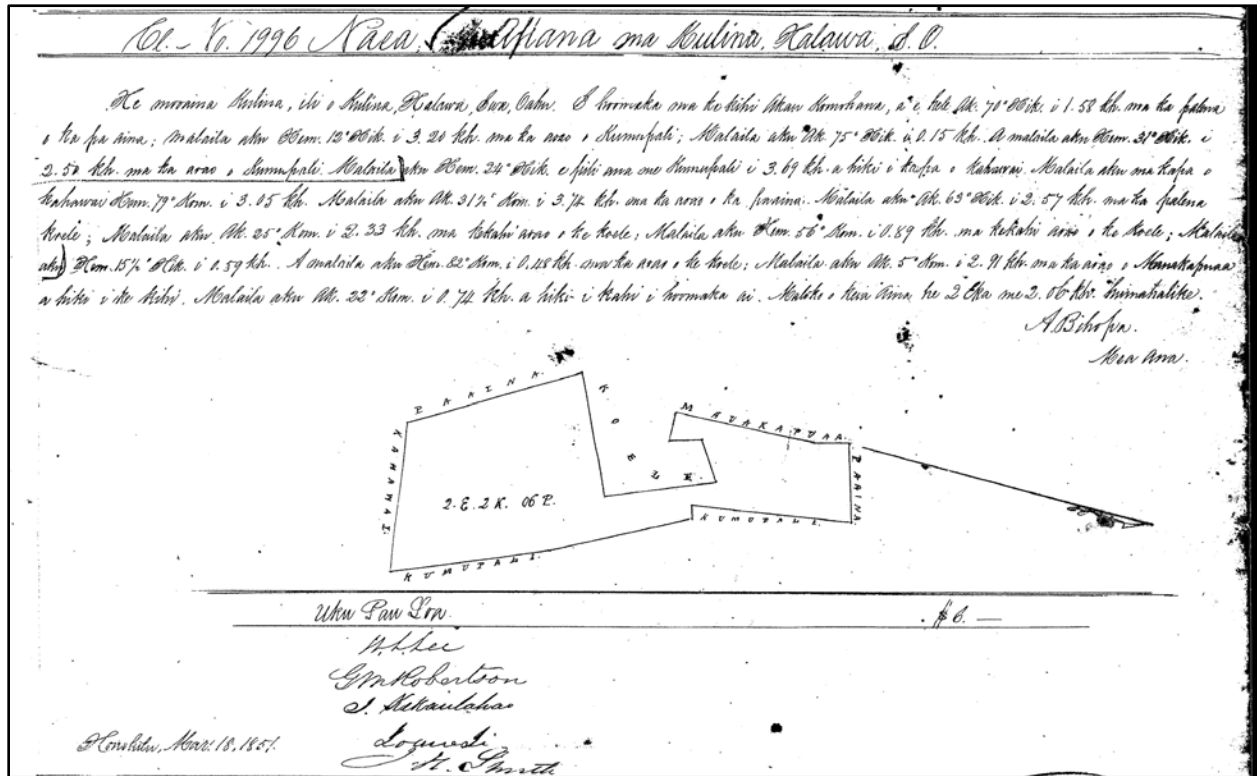 Cl. - No. 1996 Naea, ma Kulina, Halawa, S. O.
He mooaina Kulina, ili o Kulina, Halawa, Ewa, Oahu. E hoomaka ma ke kihi Akau Komohana, a e hele Ak. 70° Hik. i 1.58 kh. ma ka palena
o ka pa aina; Malaila aku Hem. 12° Hik. i 3.20 kh. ma ka aoao o Kumupali; Malaila aku Ak. 75° Hik. i 0.15 kh. A malaila aku Hem. 31° Hik. i
2.50 kh. ma ka aoao o Kumupali. Malaila aku Hem. 24° Hik. e pili ana me Kumupali i 3.09 kh. a hiki i kapa o Kahawai. Malaila aku ma kapa o
Kahawai Hem. 79° Kom. i 3.05 kh. Malaila aku Ak. 31½° Kom. i 3.74 kh. ma ka aoao o ka paaina. Malaila aku Ak. 63° Hik. i 2.57 kh. ma ka palena
koele; Malaila aku Ak. 25° Kom. i 2.33 kh. ma kekahi aoao o ke koele; Malaila aku Hem. 56° Kom. i 0.89 kh. ma kekahi aoao o ke koele; Malaila
aku Hem. 15½° Hik. i 0.59 kh. A malaila aku Hem. 82° Kom. i 0.48 kh. ma ka aoao o ke koele; Malaila aku Ak. 5° Kom. i 2.91 kh. ma ka aoao o Manakapuaa
a hiki i ke kihi. Malaila aku Ak. 22° Kom. i 0.74 kh. a hiki i kahi i hoomaka ai. Maloko o keia Aina he 2 Eka me 2.06 kh.
A. Bihopa.
Mea Ana.
PAAINA.
KOELE.
MAUAKAPUAA.
PAAINA.
KAHAWAI.
2. E. 2 K. 06 P.
KUMUPALI.
KUMUPALI.
Uku Pau Loa. $6. —
W. L. Lee
G M Robertson
J. Kekaulahao
J. H. Smith
Honolulu, Mar. 18, 1851.